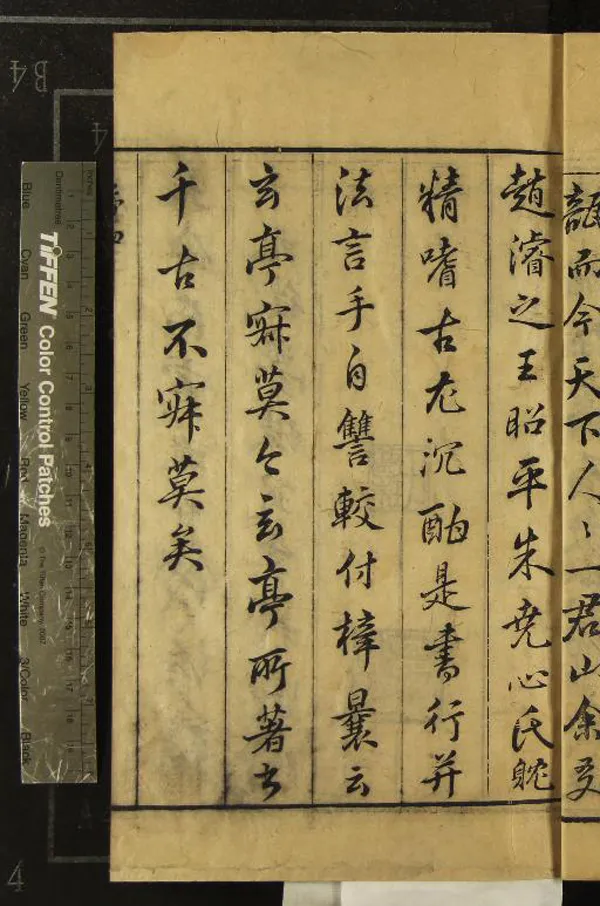 瓿而今天下人〻一君山余友
趙濬之王昭平朱堯心氏躭
精嗜古尤沉酣是書行并
法言手自讐較付梓曩云
玄亭寂莫今玄亭所著書
千古不寂莫矣
Inches
Centimetres
TIFFEN Color Control Patches
© The Tiffen Company, 2007
Blue Cyan Green Yellow Red Magenta White 3/Color Black
B4
4
4